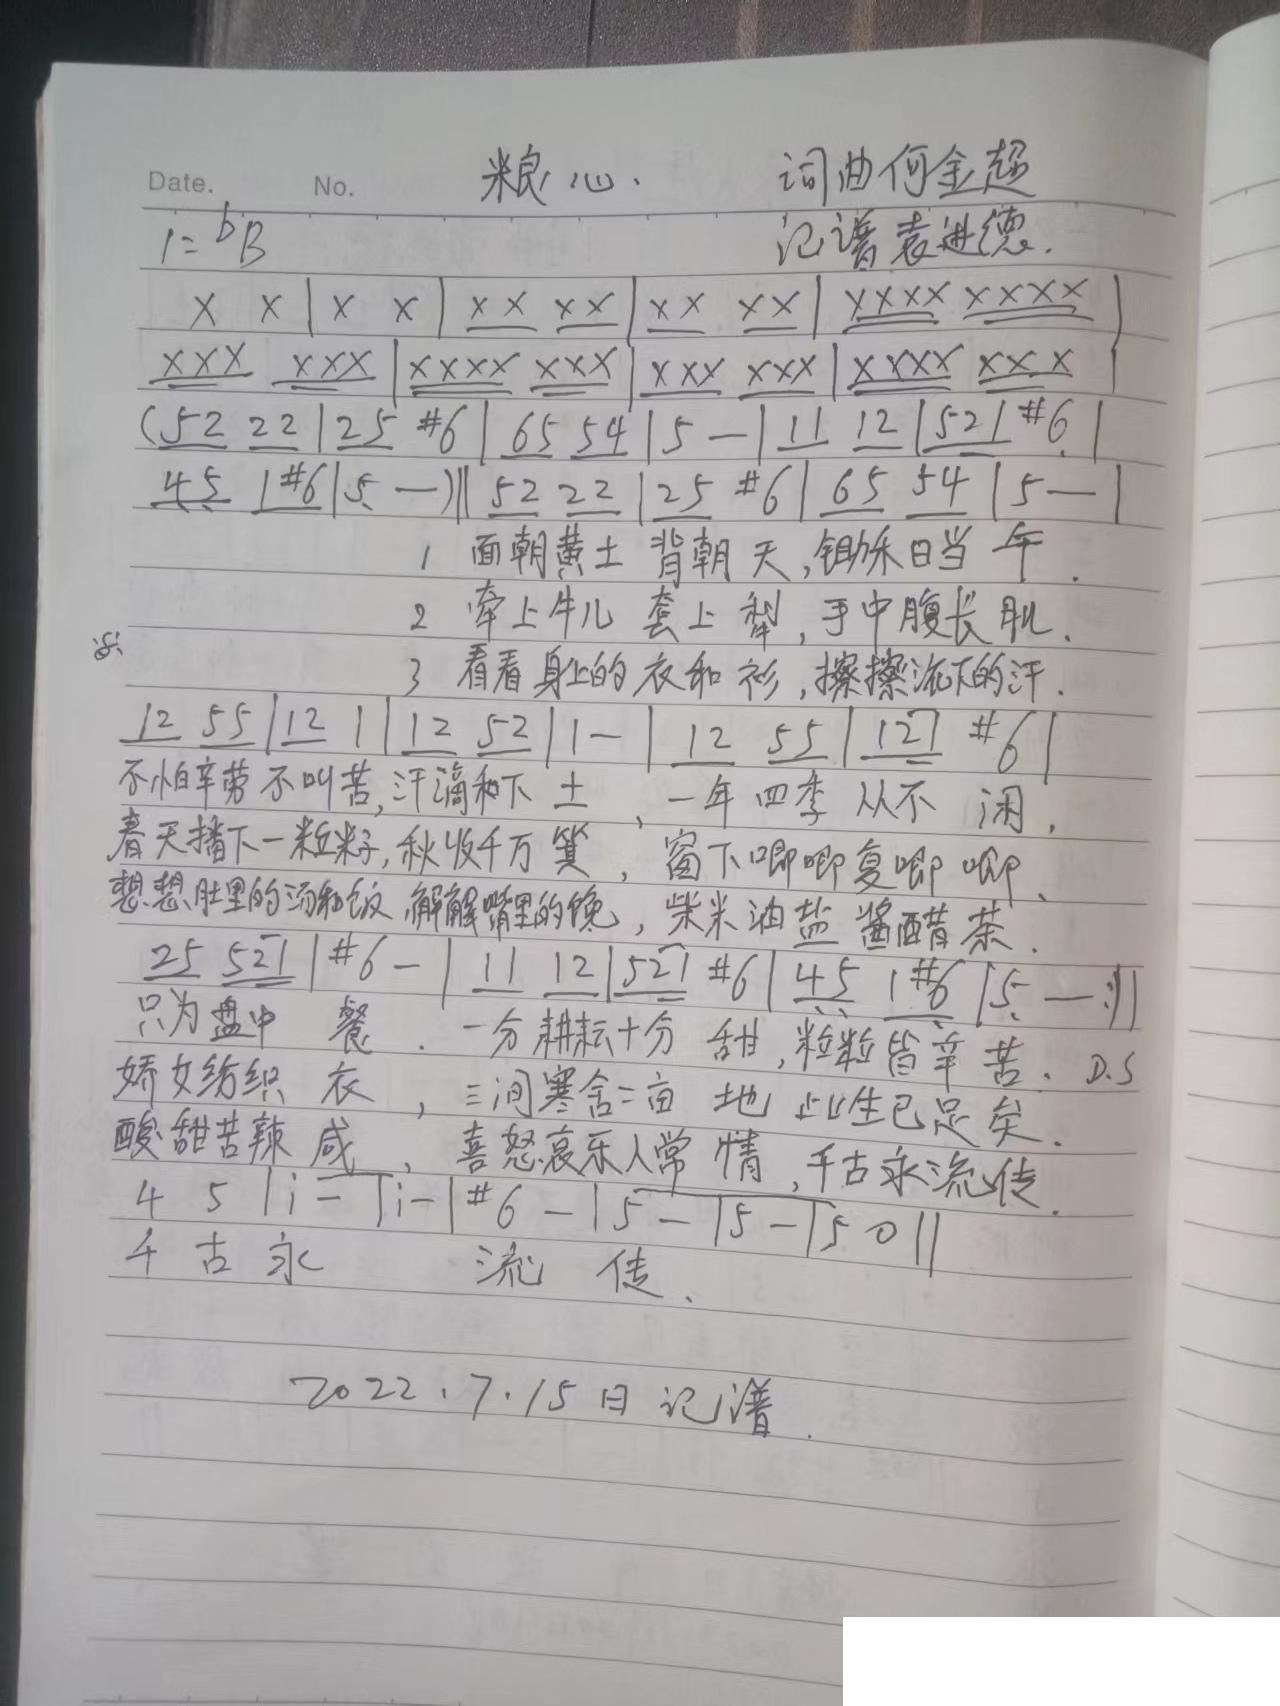 Date. No. 粮心. 词曲何金超
1=bB 记谱袁进德.
X X | X X | XX XX | XX XX | XXXX XXXX |
XXX XXX | XXXX XXX | XXX XXX | XXXX XXX |
(52 22 | 25 #6 | 65 54 | 5 — | 11 12 | 521 #6 |
45 1#6 | 5 —) || 52 22 | 25 #6 | 65 54 | 5 — |
1 面朝黄土 背朝天,锄禾日当午.
2 牵上牛儿 套上犁,手中腹长肌.
3 看看身上的衣和衫,擦擦流下的汗.
12 55 | 12 1 | 12 52 | 1 — | 12 55 | 121 #6 |
不怕辛劳不叫苦,汗滴和下土,一年四季从不闲,
春天播下一粒籽,秋收千万箕,窗下唧唧复唧唧,
想想肚里的汤和饭,解解嘴里的馋,柴米油盐酱醋茶.
25 521 | #6 — | 11 12 | 521 #6 | 45 1#6 | 5 — :||
只为盘中餐.一分耕耘十分甜,粒粒皆辛苦. D.S
娇女纺织衣,三间寒舍二亩地 此生已足矣.
酸甜苦辣咸,喜怒哀乐人常情,千古永流传.
4 5 | i — | i — | #6 — | 5 — | 5 — | 5 0 ||
千古永 流传.
2022.7.15日记谱.